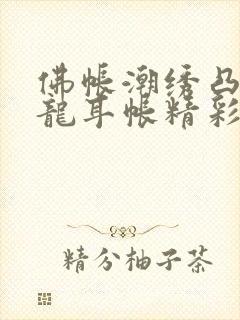 佛帐潮绣凸
龍耳帐精彩
精分柚子茶